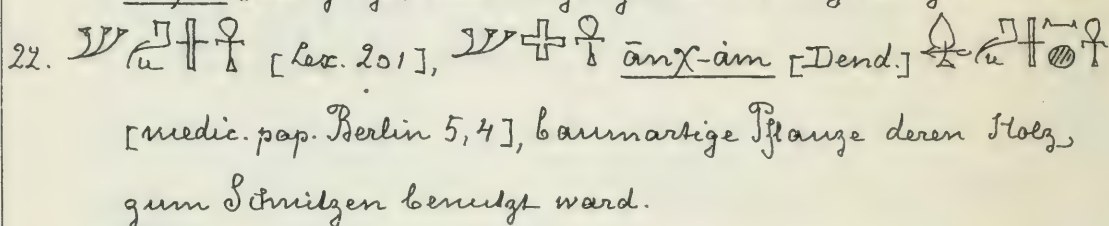 22. [Lex. 201], ānχ-àm [Dend.]
[medic. pap. Berlin 5,4], baumartige Pflanze deren Holz,
zum Schnitzen benutzt ward.